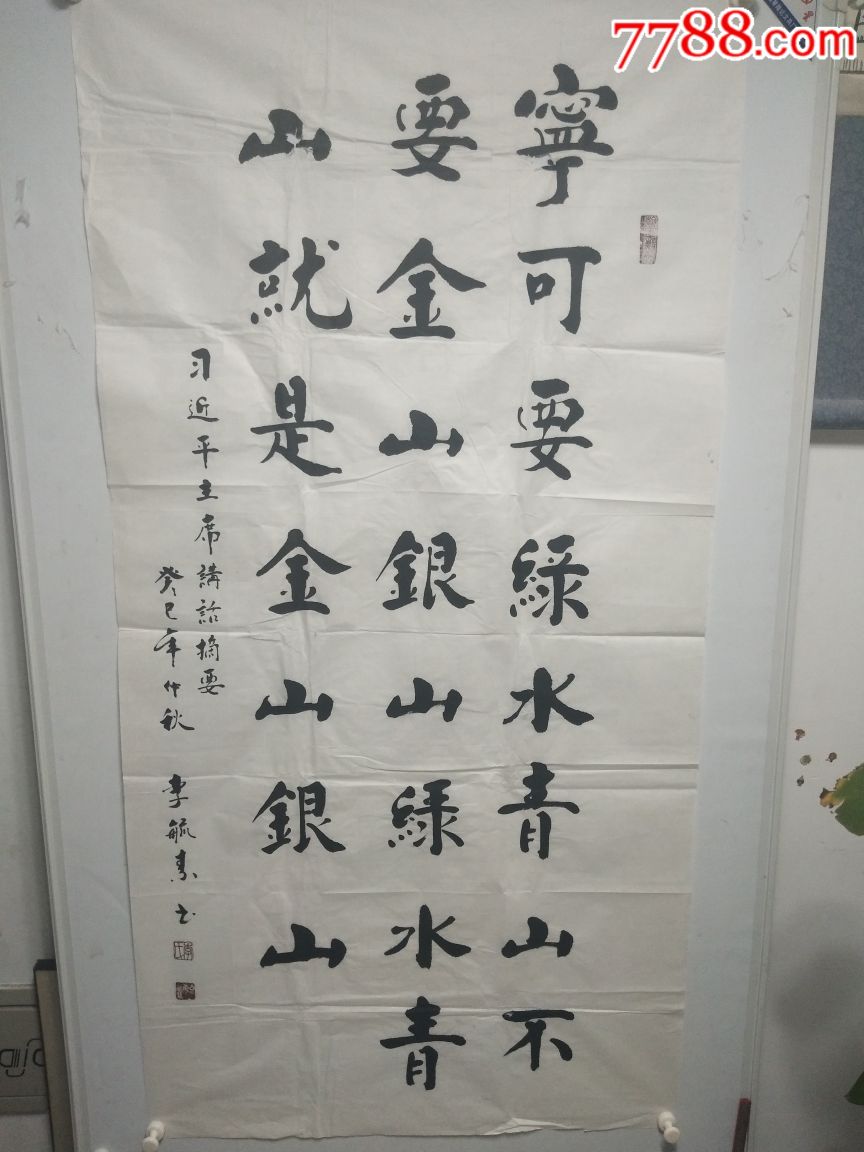 7788.com
寧可要綠水青山不
要金山銀山綠水青
山就是金山銀山
习近平主席講話摘要
癸巳年仲秋 李毓素书